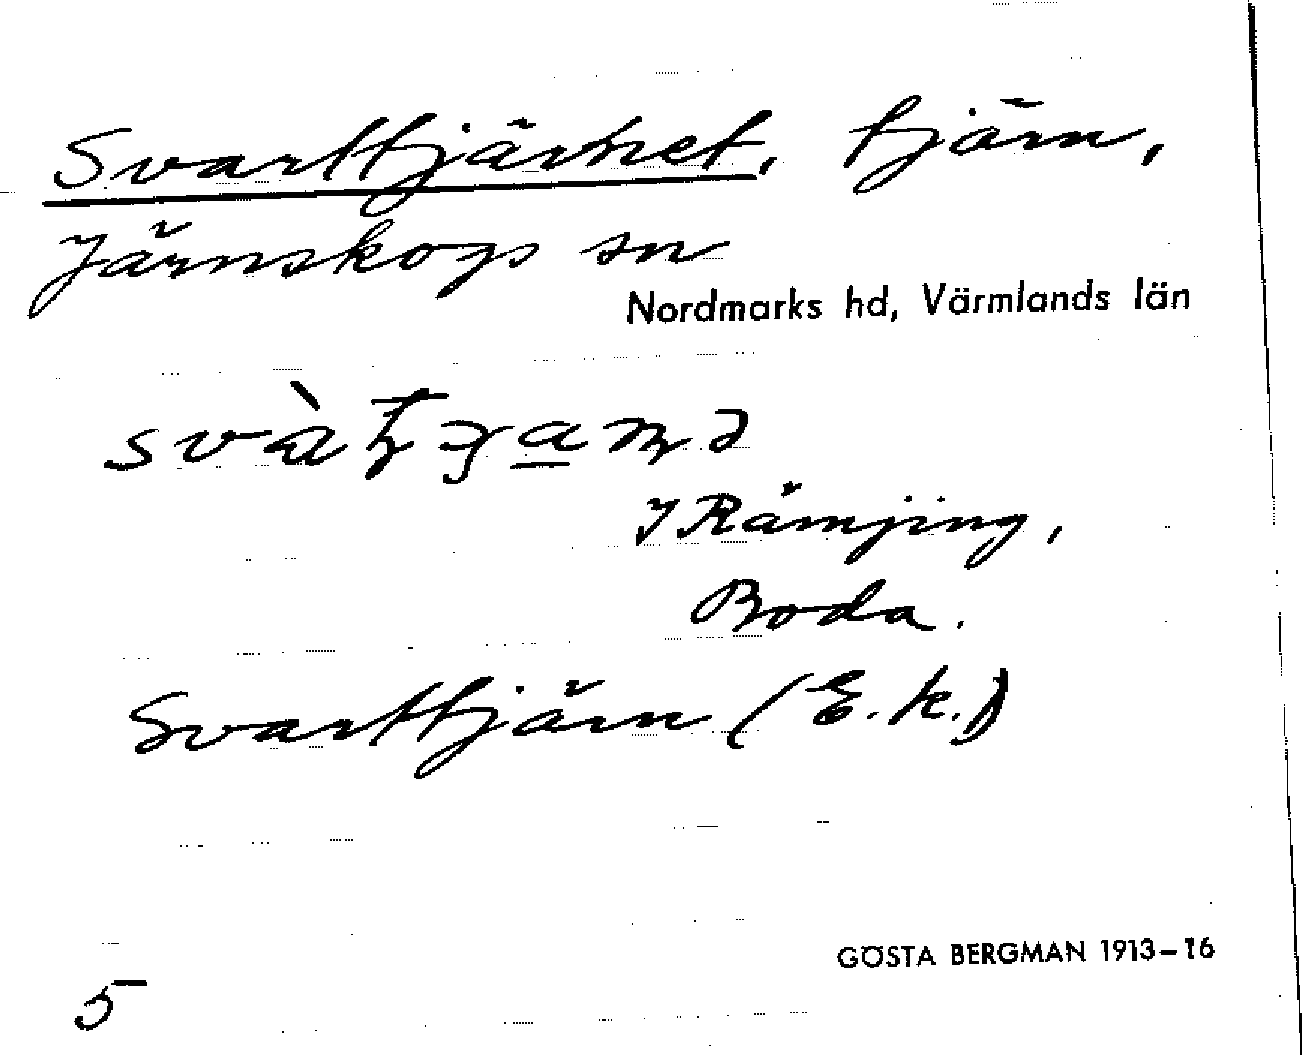 Svarttjärnet, tjärn,
Järnskogs sn
Nordmarks hd, Värmlands län
J Rämjing,
Boda.
Svarttjärn (E.k.)
GÖSTA BERGMAN 1913–16
5